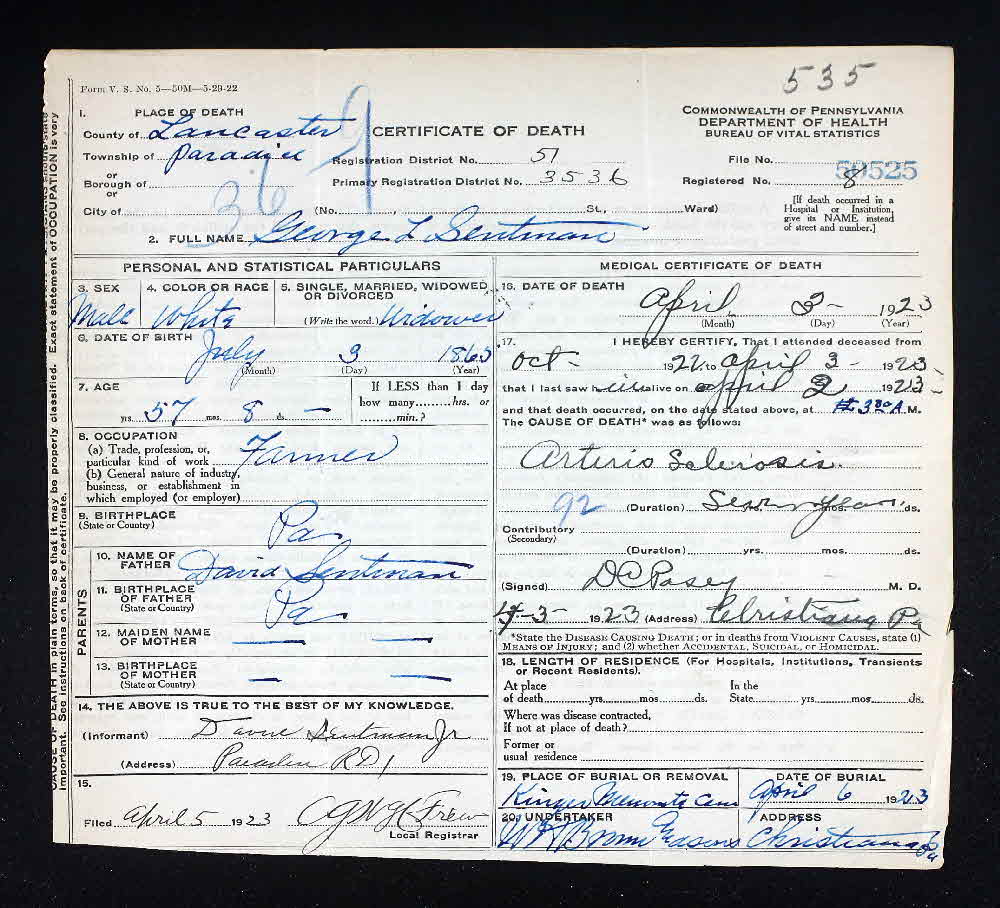 535
Form V. S. No. 5—50M—5-29-22
1. PLACE OF DEATH
County of Lancaster
Township of Paradise
or
Borough of
or
City of
369
CERTIFICATE OF DEATH
Registration District No. 51
Primary Registration District No. 3536
(No. , St., Ward)
COMMONWEALTH OF PENNSYLVANIA
DEPARTMENT OF HEALTH
BUREAU OF VITAL STATISTICS
File No. 50525
Registered No. 8
[If death occurred in a
Hospital or Institution,
give its NAME instead
of street and number.]
2. FULL NAME George L Sentman
PERSONAL AND STATISTICAL PARTICULARS
3. SEX
Male
4. COLOR OR RACE
White
5. SINGLE, MARRIED, WIDOWED,
OR DIVORCED
(Write the word.) Widower
6. DATE OF BIRTH
July 3 1865
(Month) (Day) (Year)
7. AGE
yrs. 57 mos. 8 ds. —
If LESS than 1 day
how many hrs. or
min.?
8. OCCUPATION
(a) Trade, profession, or,
particular kind of work Farmer
(b) General nature of industry,
business, or establishment in
which employed (or employer)
9. BIRTHPLACE
(State or Country)
Pa
PARENTS
10. NAME OF
FATHER David Sentman
11. BIRTHPLACE
OF FATHER
(State or Country) Pa
12. MAIDEN NAME
OF MOTHER — —
13. BIRTHPLACE
OF MOTHER
(State or Country) — —
14. THE ABOVE IS TRUE TO THE BEST OF MY KNOWLEDGE.
(Informant) Sentman Jr
(Address) Paradise RD1
15.
Filed April 5 1923
Local Registrar
MEDICAL CERTIFICATE OF DEATH
16. DATE OF DEATH
April 3 1923
(Month) (Day) (Year)
17. I HEREBY CERTIFY, That I attended deceased from
Oct - 1922, to April 3 - 1923
that I last saw him alive on April 2, 1923
and that death occurred, on the date stated above, at 3 30 A M.
The CAUSE OF DEATH* was as follows:
Arterio Sclerosis
92
(Duration) years mos. ds.
Contributory
(Secondary)
(Duration) yrs. mos. ds.
(Signed) Posey M. D.
4-3- 1923 (Address) Christiana Pa
*State the DISEASE CAUSING DEATH; or in deaths from VIOLENT CAUSES, state (1)
MEANS OF INJURY; and (2) whether ACCIDENTAL, SUICIDAL, or HOMICIDAL.
18. LENGTH OF RESIDENCE (For Hospitals, Institutions, Transients
or Recent Residents).
At place In the
of death yrs. mos. ds. State yrs. mos. ds.
Where was disease contracted,
If not at place of death?
Former or
usual residence
19. PLACE OF BURIAL OR REMOVAL
Kinzer Mennonite Cem
DATE OF BURIAL
April 6 1923
20. UNDERTAKER
ADDRESS
Christiana Pa
CAUSE OF DEATH in plain terms, so that it may be properly classified. Exact statement of OCCUPATION is very
important. See instructions on back of certificate.